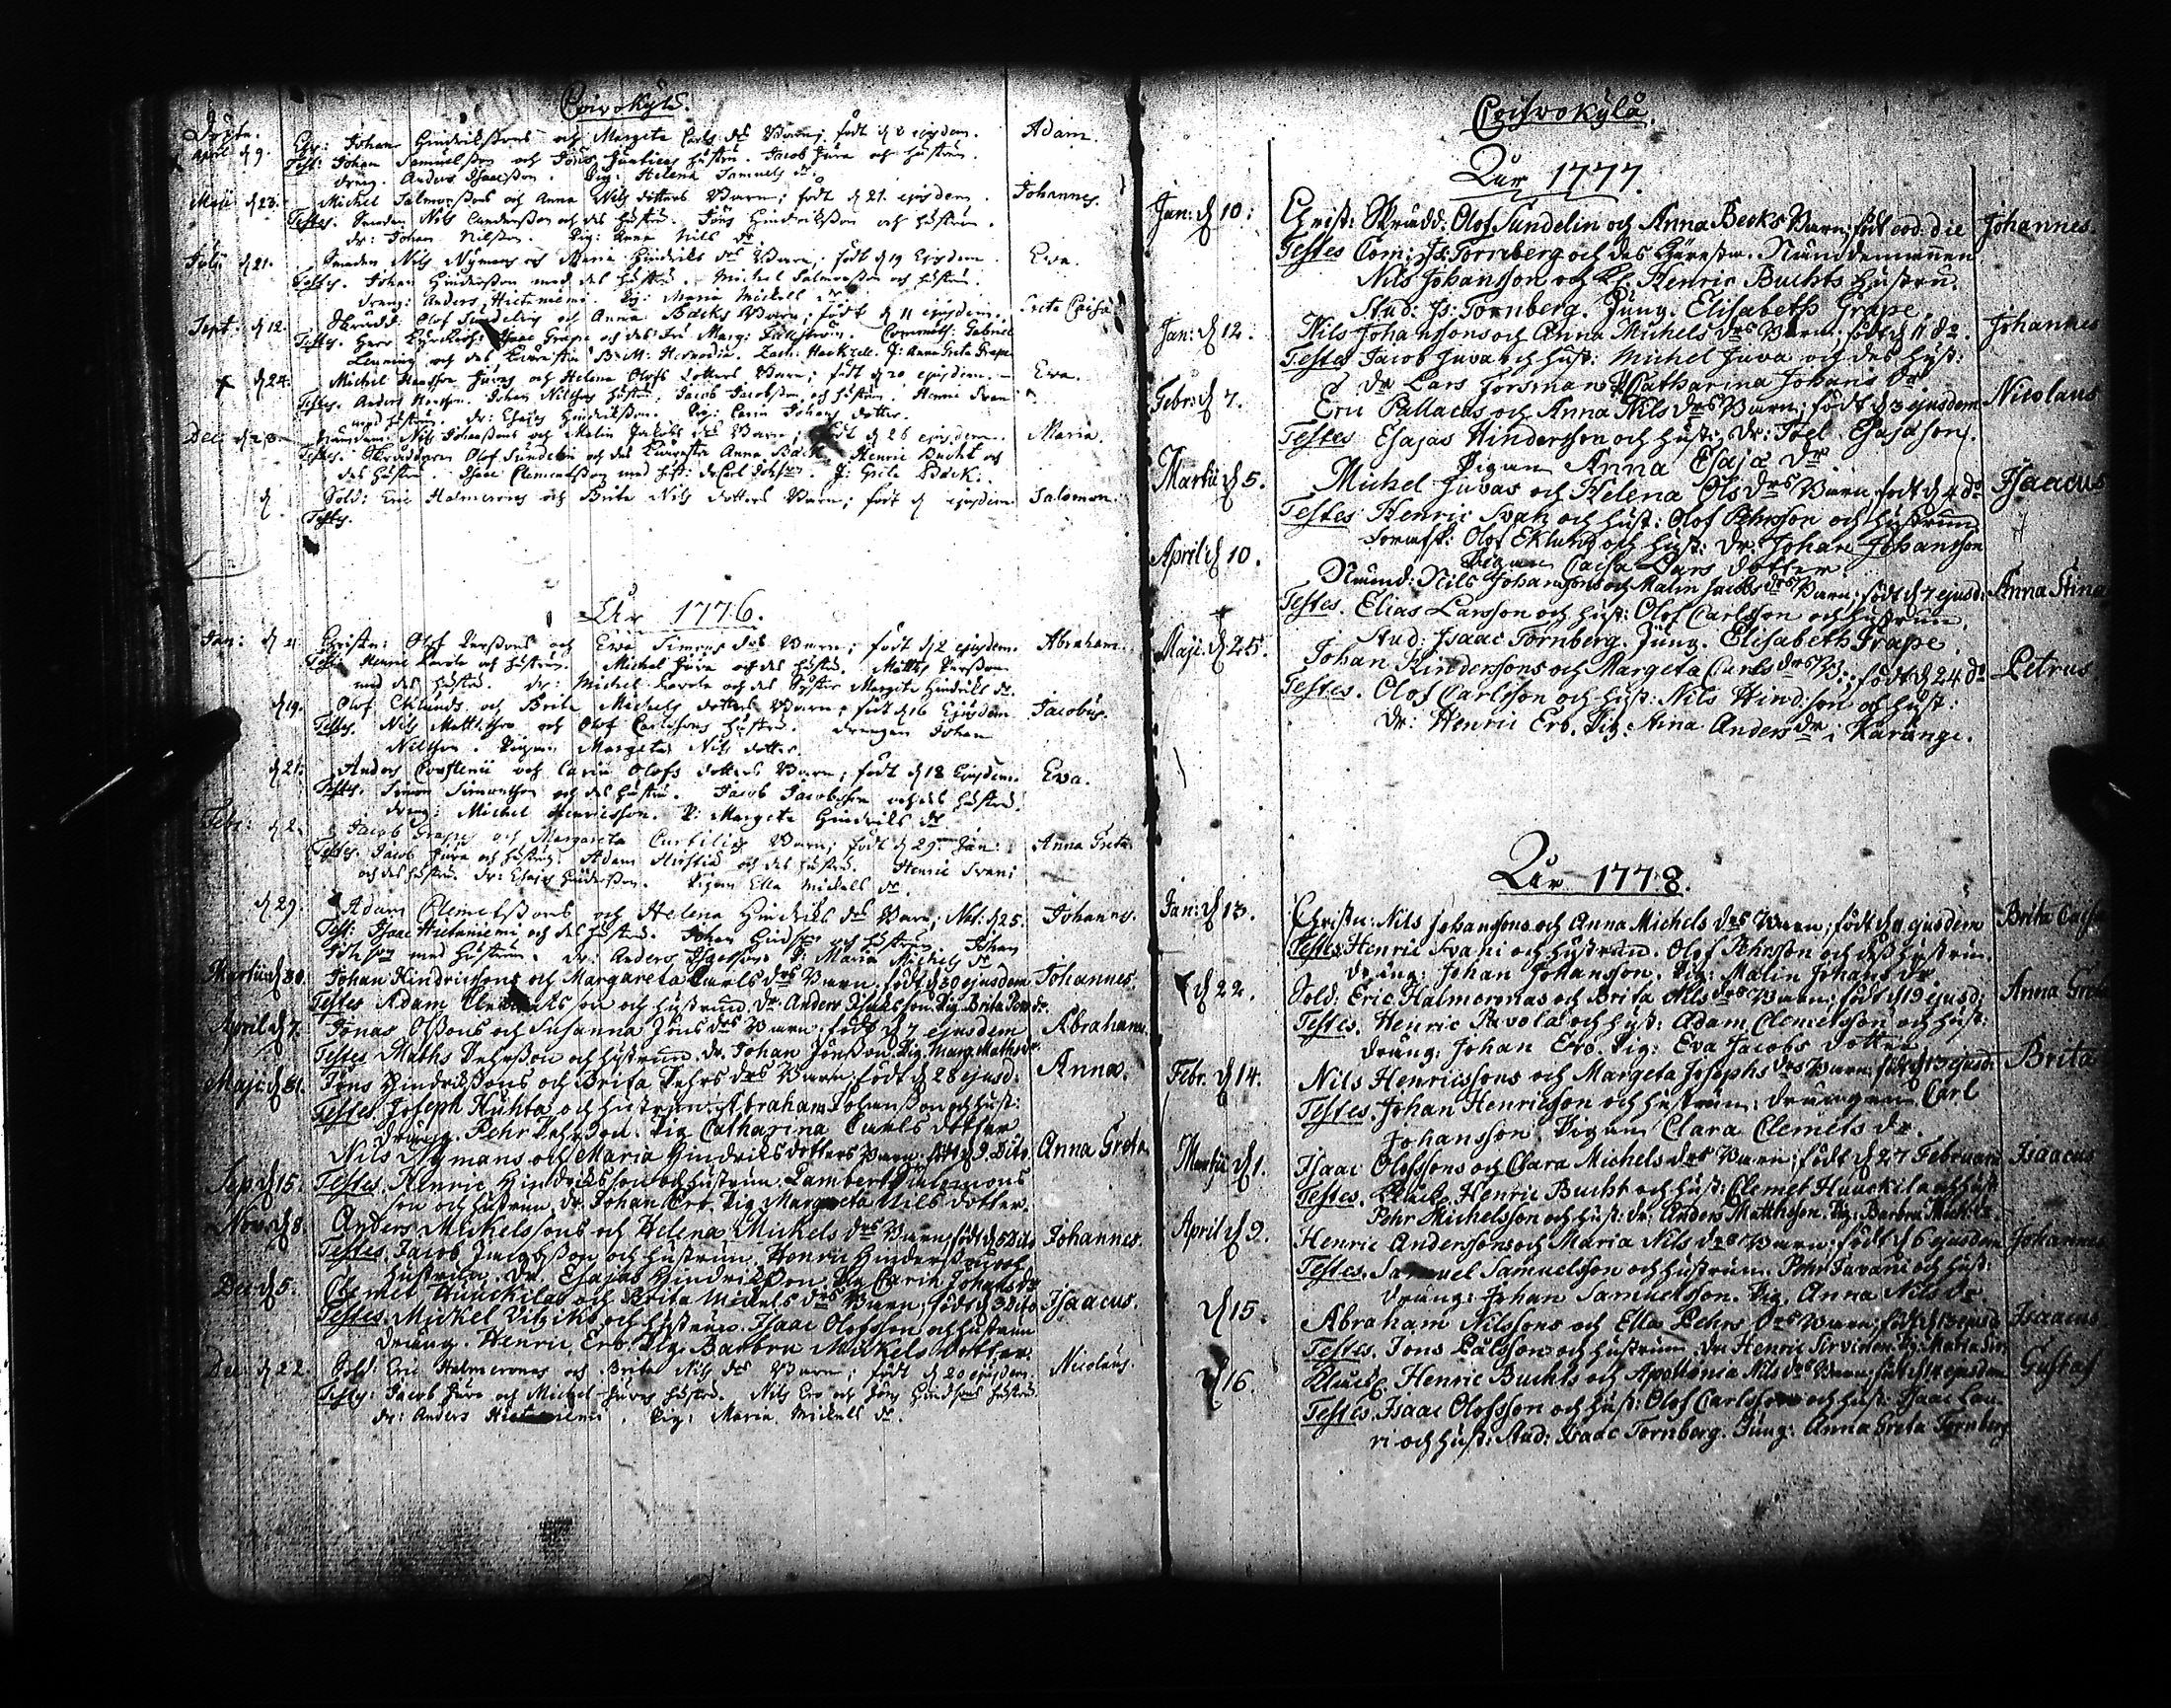 Coivokylä.
Döpte.
April d 9. Chr: Johan Hindrikßons och Margeta Carls drs Barn; födt d 8 ejusdem. Adam.
Test: Johan Samuelßon och Jöns hustru. Jacob Juva och hustrun.
dräng. Anders Isacsson. Pig: Helena Samuels dr
Maii d 23. Michel Salmonßons och Anna Nils dotters Barn; födt d 21. ejusdem. Johannes.
Testes. Smeden Nils Andersson och des hustru. Jöns Hindrikßon och hustrun.
dr: Johan Nilsson. Pig: Anna Nils dr
Julii d 21. Smeden Nils Nymans och Maria Hindriks drs Barn; födt d 19 Ejusdem. Eva.
Testes. Johan Hinderßon med des hustru. Michel Salmonßon och hustrun.
dräng: Anders Hietaniemi. Pig: Maria Mickels dr
Sept: d 12. Skrädd: Olof Sundelins och Anna Bäcks Barn; födt d 11 ejusdem. Greta Caisa
Testes. Herr Kyrckioh: Isaac Grape och des Fru Marg: Comminist: Gabriel
och des Kiäresta Britt: Zach: Hackzell. J: Anna Greta Grape
d 24. Michel Juvas och Helena Olofs dotters Barn; födt d 20 ejusdem. Eva.
Testes. Anders Johan Nilssons hustru. Jacob Jacobsson och hustru. Henric
med hustru. dr: Esajas Hindrikßon. Pig: Carin Johans dotter.
Dec: d 28 Nämdem: Nils Johanßons och Malin Jacobs drs Barn; födt d 26 ejusdem. Maria.
Testes. Skräddaren Olof Sundelin och des Kiäresta Anna Bäck. Henric Bucht och
des hustru. Isac Clemendßon med hust: dr Carl Johßon J: Greta Bäck.
d Sold: Eric Halmeronas och Brita Nils dotters Barn; födt d ejusdem. Salomon.
Testes.
År 1776.
Jan: d Christn: Olof Perßons och Eva Simons drs Barn; födt d 2 ejusdem. Abraham.
Testes Henric Pavola och hustrun. Michel Juva och des hustru. Matths Perßon
med des hustru. dr: Michel Pavola och des Syster Margeta Hindriks dr.
d 19. Olof Eklunds och Brita Michels dotters Barn; födt d 16 Ejusdem. Jacobus.
Testes. Nils Matthsson och Olof Carlssons hustru. drengen Johan
Nilsson. Pigan Margeta Nils dotter.
d 21. Anders och Carin Olofs dotters Barn; födt d 18 Ejusdem. Eva.
Testes. Simon Simonsson och des hustru. Jacob Jacobsson och des hustru.
dräng: Michel Henricsson. P: Margeta Hindriks dr
Febr: d 2. Jacob Grapes och Margareta Curtilii Barn; födt d 29. Jan: Anna Greta.
Testes. Jacob Juva och hustru. Adam och des hustru. Henric Ivani
och des hustru. dr: Esajas Hinderßon. Pigan Ella Mickels dr
d 29. Adam Clemetßons och Helena Hindriks drs Barn; Nat: d 25. Johannes.
Test: Isaac Hietaniemi och des hustru. Johan Hindßon och hustrun. Johan
med hustrun. dr: Anders P: Maria Michels dr
Martii d 30. Johan Hindricssons och Margareta Carls drs Barn, födt d 30 ejusdem Johannes.
Testes Adam Clemetsson och hustrun. dr Anders Isacksson. Pig Brita Pers dr.
April d 7. Jonas Olßons och Susanna Jöns drs Barn, födt d 7 ejusdem Abraham.
Testes Maths Pehrßon och hustrun. dr. Johan Jönßon. Pig Marg. Maths dr
Maji d 31. Jöns Hindrikßons och Brita Pehrs drs Barn; födt d 28 ejusd: Anna.
Testes. Joseph Huhta och hustrun. Abraham Johanßon och hust:
dräng. Pehr Pehrßon. Pig Catharina Carls dotter
Sep d 15. Nils Nymans och Maria Hindriks dotters Barn, födt d 9 Dito Anna Greta
Testes. Henric Hindricsson och hustrun. Lambert Salomons
son och hustrun. dr. Johan Ero. Pig Margeta Nils dotter.
Nov d 8. Anders Mickelssons och Helena Mickels drs Barn, födt d 5 Dito Johannes.
Testes. Jacob Jacobsson och hustrun. Henric Hinderßon och
hustrun. Dr. Esajas Hindrikßon. Pig Carin Johans dr
Dec d 5. Clemet Hauckilas och Brita Mickels drs Barn, födt d 3 Dito Isaacus.
Testes. Mickel Vitziks och hustrun. Isaac Olofsson och hustrun
dräng. Henric Ero. Pig Barbru Mickels dotter.
Dec d 22. Sold: Eric Halmeronas och Brita Nils drs Barn; födt d 20 ejusdem. Nicolaus.
Testes: Jacob Juva och Michel Juvas hustru. Nils Ero och Jöns Hindßons hustru
dr: Anders Hietaniemi. Pig: Maria Mickels dr.
Coisvokylä.
Åhr 1777.
Jan: d 10: Christ: Skrädd: Olof Sundelin och Anna Becks Barn, födt eod. die Johannes.
Testes Com: Is: Tornberg och des Käresta. Nämndemannen
Nils Johansson och Kl. Henric Buchts hustru.
Stud: Is: Tornberg. Jung. Elisabeth Grape.
Jan: d 12. Nils Johanssons och Anna Michels drs Barn. födt d 11 do. Johannes
Testes Jacob Juva och hust: Michel Juva och des hust:
dr Lars Forsman. P Catharina Johans dr.
Febr: d 7. Eric Pallacus och Anna Nils drs Barn; födt d 3 ejusdem Nicolaus
Testes Esajas Hindersson och hust: Dr: Joel Esajason.
Pigan Anna Esajæ dr
Martii d 5. Michel Juvas och Helena Ols drs Barn, födt d 4 do Isaacus
Testes Henric Ivan och hust: Olof Pehrsson och hustrun
Olof Eklund och hust: Dr: Johan Johansson
Pigan Caisa Lars dotter
April d 10. Nämnd: Nils Johanssons och Malin Jacobs drs Barn; födt d 7 ejusd: Anna Stina
Testes. Elias Larsson och hust: Olof Carlsson och hustrun.
Stud: Isaac Tornberg. Jung. Elisabeth Grape.
Maji d 25. Johan Hinderssons och Margeta Carls drs B: födt d 24 do Petrus
Testes. Olof Carlsson och hust: Nils Hind:son och hust:
Dr: Henric Ero. Pig: Anna Anders dr i Karungi.
Åhr 1778.
Jan: d 13. Christn: Nils Johanssons och Anna Michels drs Barn; födt d 11 ejusdem Brita Caisa
Testes Henric Ivani och hustrun. Olof Pehrsson och deß hustrun.
dräng: Johan Johansson. Pig: Malin Johans dr.
d 22. Sold: Eric Halmeronas och Brita Nils drs Barn; födt d 19 ejusd: Anna Greta
Testes. Henric Pavola och hust: Adam Clemetsson och hust:
dräng: Johan Ero. Pig: Eva Jacobs dotter.
Febr. d 14. Nils Henricssons och Margeta Josephs drs Barn, födt d 13 ejusd: Brita
Testes. Johan Henricsson och hustrun. drängen Carl
Johansson. Pigan Clara Clemets dr.
Martii d 1. Isaac Olofssons och Clara Michels drs Barn; födt d 27 Februarii Isaacus
Testes. Klåck. Henric Bucht och hust: Clemet Hauckila och hust
Pehr Michelsson och hust: dr: Anders Matthsson. Pig: Barbru Mich: dr
April d 9. Henric Anderssons och Maria Nils drs Barn; födt d 6 ejusdem Johannes
Testes. Samuel Samuelsson och hustrun. Pehr Juvani och hust:
dräng: Johan Samuelsson. Pig. Anna Nils dr
d 15. Abraham Nilssons och Ella Pehrs drs Barn; födt d 13 ejusd Isaacus
Testes. Jöns Pålsson och hustrun. dr Henric Sirvinen. Pig Maria
d 16. Klåck. Henric Buchts och Apollonia Nils drs Barn; födt d 14 ejusdem Gustaf
Testes. Isaac Olofsson och hust: Olof Carlsson och hust. Isaac Lau-
ri och hust: Stud: Isaac Tornberg. Jung: Anna Greta Tornberg